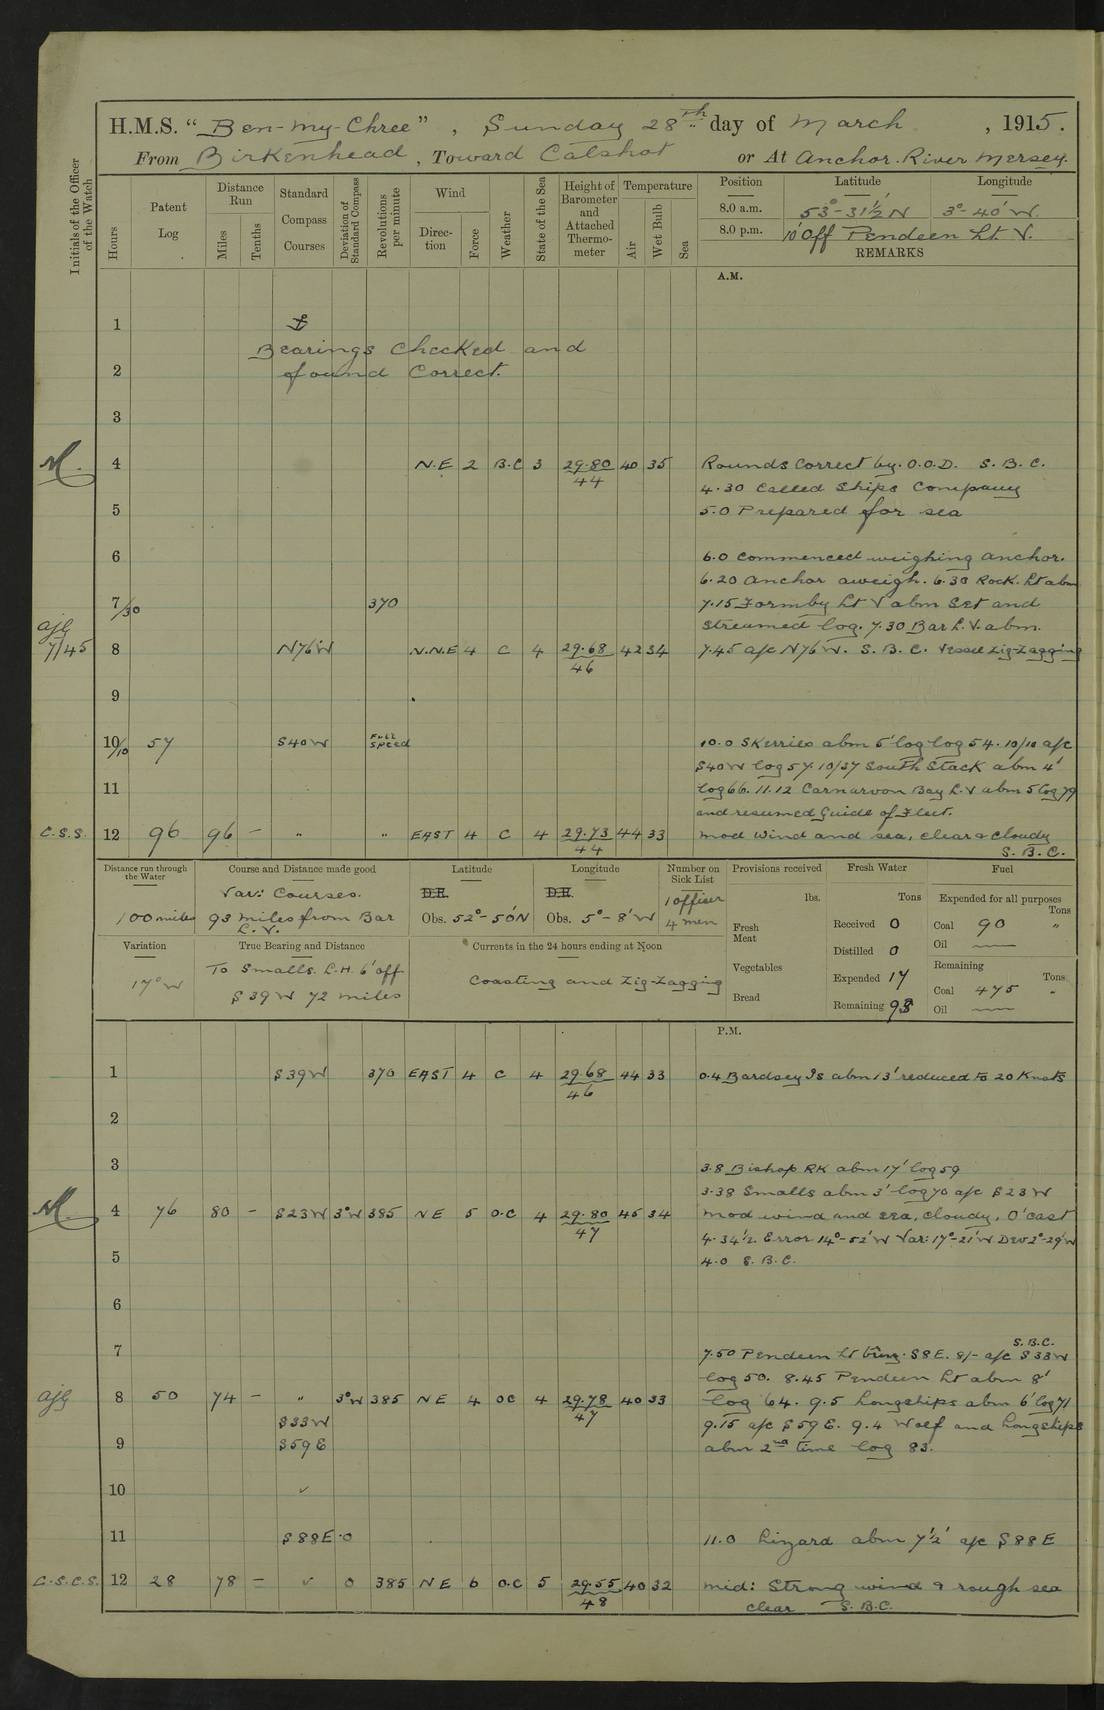 H.M.S. "Ben-my-Chree", Sunday 28th day of March, 1915.
From Birkenhead, Toward Calshot or At Anchor. River Mersey.
Initials of the Officer of the Watch
Hours
Patent Log
Distance Run
Miles
Tenths
Standard Compass Courses
Deviation of Standard Compass
Revolutions per minute
Wind
Direction
Force
Weather
State of the Sea
Height of Barometer and Attached Thermometer
Temperature
Air
Wet Bulb
Sea
Position Latitude Longitude
8.0 a.m. 53°-31½ N 3°-40' W.
8.0 p.m. 10' Off Pendeen Lt. V.
REMARKS
A.M.
1
Bearings Checked and
2 found Correct.
3
M. 4 N.E 2 B.C 3 29.80 40 35 Rounds Correct by. O.O.D. S.B.C.
44 4.30 Called Ships Company
5 5.0 Prepared for sea
6 6.0 Commenced weighing anchor.
6.20 Anchor aweigh. 6.30 Rock. Lt abm
7/30 370 7.15 Formby Lt V abm Set and
streamed log. 7.30 Bar L.V. abm.
7/45 8 N76W N.N.E 4 C 4 29.68 42 34 7.45 a/c N76W. S.B.C. Vessel Zig-Zagging
46
9
10/10 57 S40W Full Speed 10.0 Skerries abm 5' log log 54. 10/10 a/c
S40W log 57. 10/37 South Stack abm 4'
11 log 66. 11.12 Carnarvon Bay L.V abm 5 log 79
and resumed Guide of Fleet.
C.S.S. 12 96 96 – " " EAST 4 C 4 29.73 44 33 mod wind and sea, clear & cloudy
44 S.B.C.
Distance run through the Water
100 miles
Course and Distance made good
Var: Courses.
93 miles from Bar L.V.
Latitude
D.R.
Obs. 52°-50'N
Longitude
D.R.
Obs. 5°-8'W
Number on Sick List
1 officer
4 men
Provisions received
lbs.
Fresh Meat
Vegetables
Bread
Fresh Water
Tons
Received 0
Distilled 0
Expended 17
Remaining 93
Fuel
Expended for all purposes
Tons
Coal 90 "
Oil ——
Remaining
Tons
Coal 475 "
Oil ——
Variation
17° W
True Bearing and Distance
To Smalls. L.H. 6' off
S 39 W 72 miles
Currents in the 24 hours ending at Noon
Coasting and Zig-Zagging
P.M.
1 S39W 370 EAST 4 C 4 29.68 44 33 0.4 Bardsey Is abm 13' reduced to 20 Knots
46
2
3 3.8 Bishop RK abm 17' log 59
3.38 Smalls abm 3' log 70 a/c S23W
M. 4 76 80 – S23W 3°W 385 NE 5 O.C 4 29.80 45 34 mod wind and sea, cloudy, O'cast
47 4.34½ Error 14°-52'W Var: 17°-21'W Dev 2°-29'W
5 4.0 S.B.C.
6
7 S.B.C.
7.50 Pendeen Lt brng. S8E. 8/- a/c S33W
log 50. 8.45 Pendeen Lt abm 8'
8 50 74 – " 3°W 385 NE 4 OC 4 29.78 40 33 log 64. 9.5 Longships abm 6' log 71
47
S33W 9.15 a/c S59E. 9.4 Wolf and Longships
9 S59E abm 2nd time log 83.
10 ✓
11 S88E 0 11.0 Lizard abm 7½' a/c S88E
C.S.C.S. 12 28 78 – ✓ 0 385 NE 6 O.C 5 29.55 40 32 mid: Strong wind & rough sea
48 clear S.B.C.